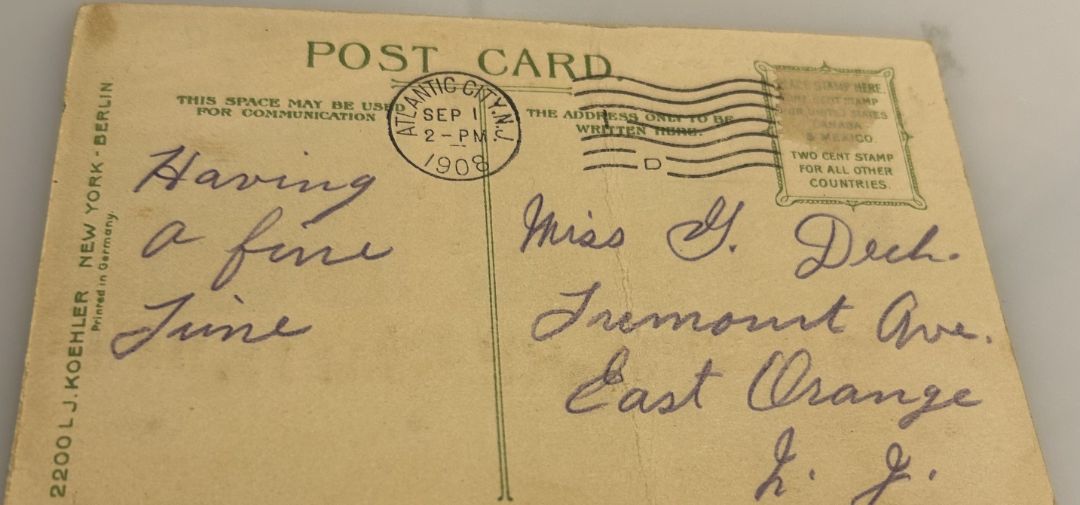 POST CARD.
THIS SPACE MAY BE USED
FOR COMMUNICATION
THE ADDRESS ONLY TO BE
WRITTEN HERE.
ATLANTIC CITY, N.J.
SEP 1
2-PM
1908
D
PLACE STAMP HERE
CENT STAMP
FOR UNITED STATES
CANADA
& MEXICO.
TWO CENT STAMP
FOR ALL OTHER
COUNTRIES.
Having
a fine
Time
Miss G. Dech.
Tremount Ave.
East Orange
N. J.
2200 L J. KOEHLER NEW YORK - BERLIN.
Printed in Germany.